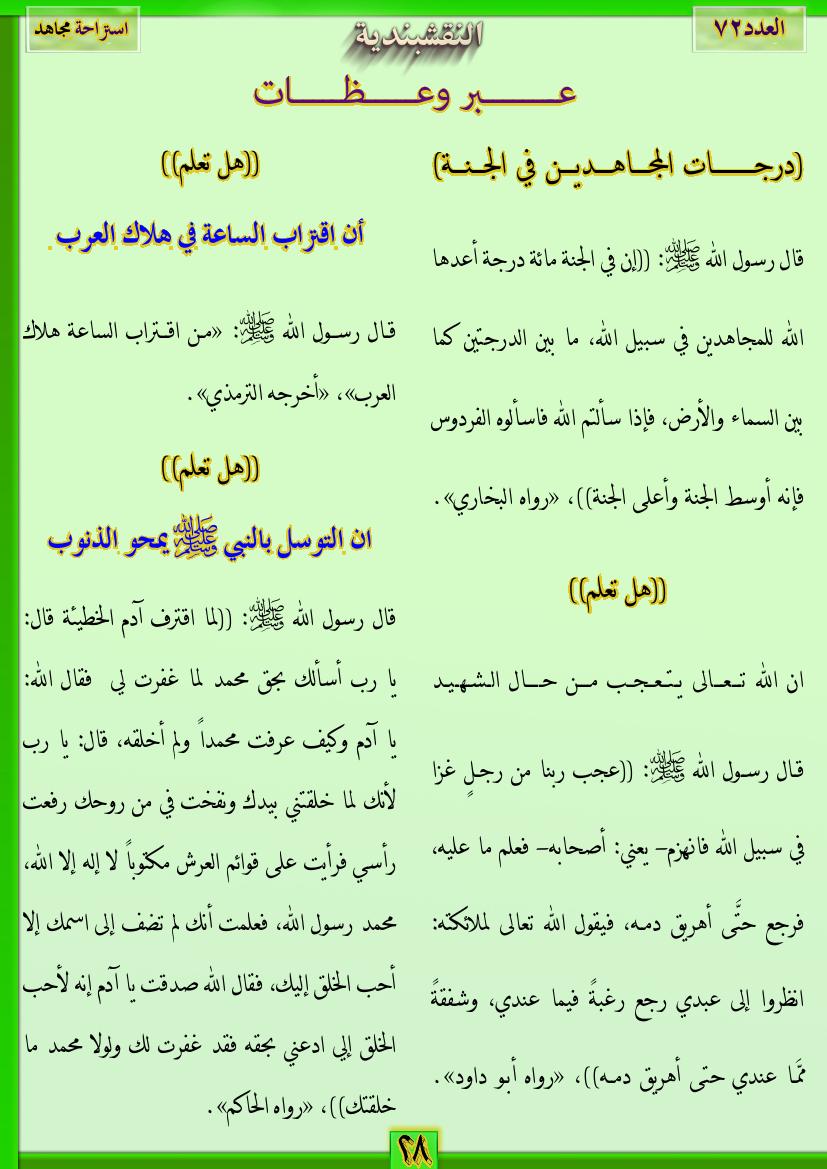 العدد٧٢
النقشبندية
استراحة مجاهد
عـــــبر وعــــظــــات
(درجــــات المجـاهـديـن في الجـنـة)
قال رسول الله ﷺ: ((إن في الجنة مائة درجة أعدها
الله للمجاهدين في سبيل الله، ما بين الدرجتين كما
بين السماء والأرض، فإذا سألتم الله فاسألوه الفردوس
فإنه أوسط الجنة وأعلى الجنة))، «رواه البخاري».
((هل تعلم))
ان الله تـعـالى يـتـعـجـب مـن حـال الـشـهـيـد
قال رسول الله ﷺ: ((عجب ربنا من رجلٍ غزا
في سبيل الله فانهزم– يعني: أصحابه– فعلم ما عليه،
فرجع حتَّى أهريق دمه، فيقول الله تعالى لملائكته:
انظروا إلى عبدي رجع رغبةً فيما عندي، وشفقةً
ممَّا عندي حتى أهريق دمه))، «رواه أبو داود».
((هل تعلم))
أن اقتراب الساعة في هلاك العرب.
قال رسول الله ﷺ: «من اقتراب الساعة هلاك
العرب»، «أخرجه الترمذي».
((هل تعلم))
ان التوسل بالنبي ﷺ يمحو الذنوب
قال رسول الله ﷺ: ((لما اقترف آدم الخطيئة قال:
يا رب أسألك بحق محمد لما غفرت لي فقال الله:
يا آدم وكيف عرفت محمداً ولم أخلقه، قال: يا رب
لأنك لما خلقتني بيدك ونفخت في من روحك رفعت
رأسي فرأيت على قوائم العرش مكتوباً لا إله إلا الله،
محمد رسول الله، فعلمت أنك لم تضف إلى اسمك إلا
أحب الخلق إليك، فقال الله صدقت يا آدم إنه لأحب
الخلق إلي ادعني بحقه فقد غفرت لك ولولا محمد ما
خلقتك))، «رواه الحاكم».
٢٨